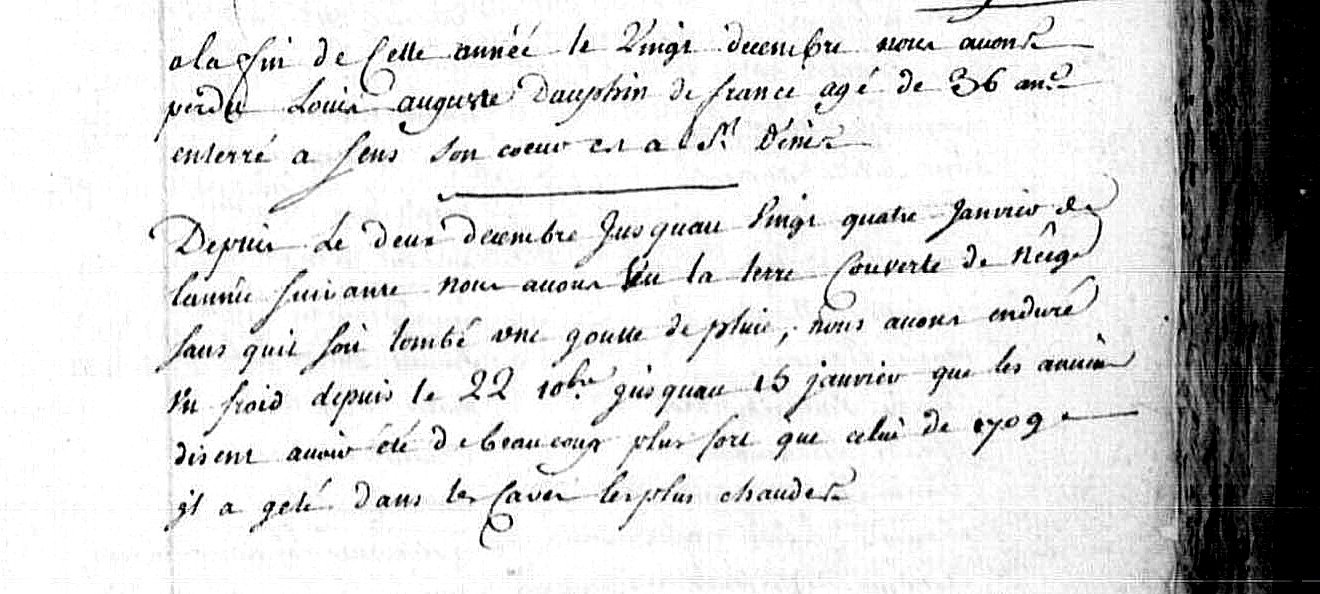 a la fin de Cette annéé le Vingt decembre nous avons
perdu Louis auguste Dauphin de france agé de 36 ans
enterré a Sens son coeur est a St Dénis
Depuis Le deux decembre Jusquau Vingt quatre Janvier de
lannée suivante nous avons Vu la terre Couverte de Nêige
sans quil soit tombé une goutte de pluie, nous avons enduré
Vn froid depuis le 22 10bre jusquau 15 janvier que les anciens
disent avoir été de beaucoup plus fort que celui de 1709
il a gelé dans les Caves les plus chaudes